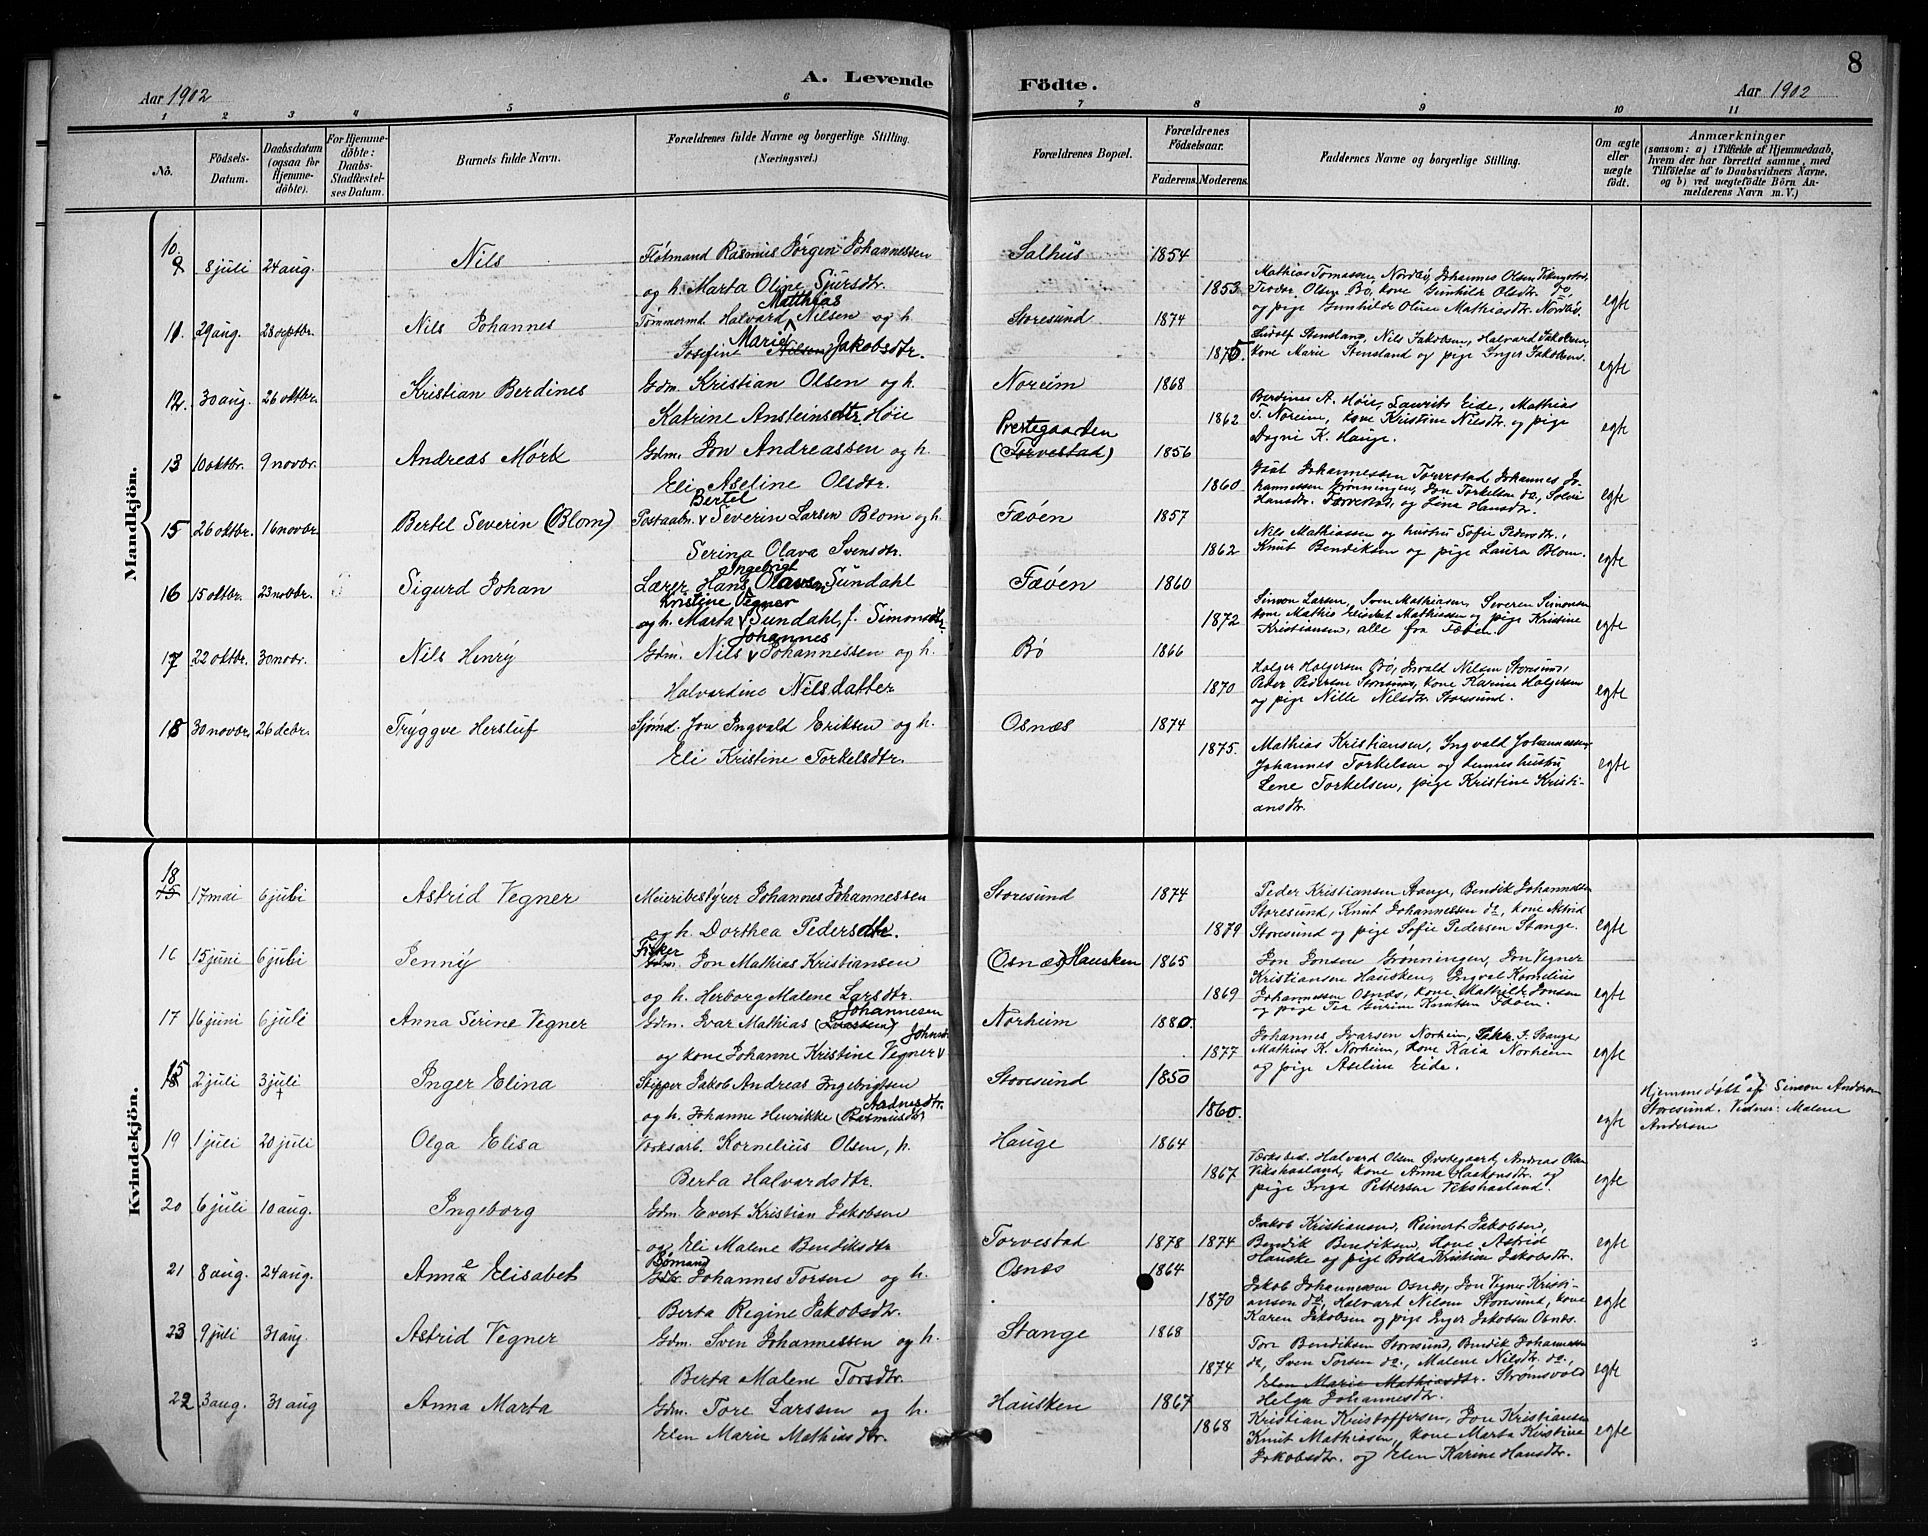 8
A. Levende Födte.
Aar 1902
Aar 1902
1 2 3 4 5 6 7 8 9 10 11
No.
Födsels-Datum.
Daabsdatum (ogsaa for Hjemme-döbte).
For Hjemme-döbte: Daabs-Stadfæstel-ses Datum.
Barnets fulde Navn.
Forældrenes fulde Navne og borgerlige Stilling. (Næringsvei.)
Forældrenes Bopæl.
Forældrenes Födselsaar.
Faderens. Moderens.
Faddernes Navne og borgerlige Stilling.
Om ægte eller uægte födt.
Anmærkninger
(saasom: a) i Tilfælde af Hjemmedaab, hvem der har forrettet samme, med Tilföielse af to Daabsvidners Navne, og b) ved uægtefödte Börn An-melderens Navn m. V.)
Mandkjön.
10 9 8 juli 24 aug. Nils Fløtmand Rasmus Jørgen Johannessen Salhus 1854
og h. Marta Oline Sjursdtr. 1853 Mathias Tomassen Nordbø, Johannes Olsen Vikingstad, Teodor Olsen Bø, kone Gunhilde Olsdtr. do, og pige Gunhilde Oline Mathiasdtr. Nordbø. egte
11. 29 aug. 28 septbr. Nils Johannes Tømmermd. Halvard Matthias Nilsen og h. Storesund 1874
Josefine Marie Nilsen Jakobsdtr. 1875 Ludolf Stensland, Nils Jakobsen, Halvard Jakobsen, kone Marie Stensland og pige Inger Jakobsen. egte
12. 30 aug. 26 oktbr. Kristian Berdines Gdm. Kristian Olsen og h. Noreim 1868
Katrine Ansteinsdtr. Høie 1862 Berdines A. Høie, Laurits Eide, Mathias T. Noreim, kone Kristine Nilsdtr. og pige Dagni K. Hauge. egte
13 10 oktbr. 9 novbr. Andreas Mørk Gdm. Jon Andreassen og h. Prestegaarden (Torvestad) 1856
Eli Aseline Olsdtr. 1860 Johannessen Torvestad, Johannes Johannessen Grønningen, Jon Torkelsen do, Hansdtr. Torvestad, og Lina Hansdtr. egte
15 26 oktbr. 16 novbr. Bertel Severin (Blom) Postaabn. Bertel Severin Larsen Blom og h. Fæøen 1857
Serina Olava Svensdtr. 1862 Nils Mathiassen og hustru Sofie Pedersdtr., Knut Bendiksen og pige Laura Blom. egte
16 15 oktbr. 23 novbr. Sigurd Johan Lærer Hans Ingebrigt Olavsen Sundahl Fæøen 1860
og h. Marta Kristine Vegner Sundahl, f. Simonsdtr. 1872 Simon Larsen, Sven Mathiasen, Severen Simonsen kone Mathis Elisabet Mathiassen og pige Kristine Kristiansen, alle fra Fæøen. egte
17 22 oktbr. 30 novbr. Nils Henry Gdm. Nils Johannes Johannessen og h. Bø 1866
Halvardine Nilsdatter 1870 Holger Holgersen Bø, Invald Nilsen Storesund, Peder Pedersen Storesund, kone Karine Holgersen og pige Nille Nilsdtr. Storesund. egte
18 30 novbr. 26 decbr. Tryggve Hersluf Sjømd. Jon Ingvald Eriksen og h. Osnæs 1874
Eli Kristine Torkelsdtr. 1875. Mathias Kristiansen, Ingvald Johannessen, Johannes Torkelsen og dennes hustru Lene Torkelsen, pige Kristine Kristi-ansdtr. egte
Kvindekjön.
18 15 17 mai 6 juli Astrid Vegner Meieribestyrer Johannes Johannessen Storesund 1874
og h. Dorthea Pedersdtr. 1879 Peder Kristiansen Stange, Bendik Johannessen Storesund, Knut Johannessen do, kone Astrid Storesund og pige Sofie Pedersen Stange. egte
16 15 juni 6 juli Jenny Fisker Gdm. Jon Mathias Kristiansen (Osnæs) Hausken 1865
og h. Herborg Malene Larsdtr. 1869 Jon Jonsen Grønningen, Jon Vegner Kristiansen Hausken, Ingval Kornelius Johannessen Osnæs, kone Mathilde Jonsen og pige Tea Gurine Knutsen Fæøen. egte
17 16 juni 6 juli Anna Serine Vegner Gdm. Ivar Mathias (Ivarssen) Johannesen Norheim 1880.
og kone Johanne Kristine Vegner Johnsdtr. 1877 Johannes Ivarsen Norheim, T. Stange, Mathias K. Norheim, kone Kaia Norheim og pige Aseline Eide. egte
15 18 2 juli 3 juli + Inger Elina Skipper Jakob Andreas Ingebrigtsen Storesund 1850
og h. Johanne Henrikke (Rasmusdtr.) Aadnesdtr. 1860. egte Hjemmedøbt af Simon Andersen Storesund. Vidner: Malene Andersen
19 1 juli 20 juli Olga Elisa Værksarb. Kornelius Olsen, h. Hauge 1864
Berta Halvardsdtr. 1867 Halvard Olsen Øvregaard, Andreas Olsen Vikshaaland, kone Anna Haakonsdtr. og pige Inga Pettersen Vikshaaland. egte
20 6 juli 10 aug. Ingeborg Gdm. Evert Kristian Jakobsen
og Eli Malene Bendiksdtr Torvestad 1878 1874 Jakob Kristiansen, Reinert Jakobsen, Bendik Bendiksen, kone Astrid Hauske og pige Bolla Kristine Jakobsdtr. egte
21 8 aug. 24 aug. Anne Elisabet Bømand Gdm. Johannes Torsen og h. Osnæs 1864
Berta Regine Jakobsdtr. 1870 Jakob Johannessen Osnæs, Jon Vegner Kristi-ansen do, Halvard Nilsen Storesund, kone Karen Jakobsen og pige Inger Jakobsen Osnæs. egte
23 9 juli 31 aug. Astrid Vegner Gdm. Sven Johannessen og h. Stange 1868
Berta Malene Torsdtr. 1874 Tore Bendiksen Storesund, Bendik Johannessen do, Sven Torsen do, Malene Nilsdtr. do, Elen Marie Mathiasdtr. Strømsvold Helga Johannesdtr. egte
22 3 aug. 31 aug Anna Marta Gdm. Tore Larssen og h. Hausken 1867
Elen Marie Mathiasdtr. 1868 Kristian Kristoffersen, Jon Kristiansen Knut Mathiasen, kone Marta Kristine Jakobsdtr. og Elen Karine Hansdtr. egte